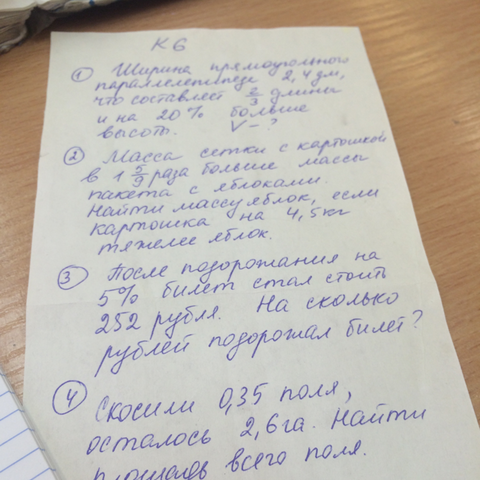 К 6
① Ширина прямоугольного
параллелепипеда 2,4 дм,
что составляет 2/3 длины
и на 20% больше
высоты. V - ?
② Масса сетки с картошкой
в 1 5/9 раза больше массы
пакета с яблоками.
Найти массу яблок, если
картошка на 4,5 кг
тяжелее яблок.
③ После подорожания на
5% билет стал стоить
252 рубля. На сколько
рублей подорожал билет?
④ Скосили 0,35 поля,
осталось 2,6 га. Найти
площадь всего поля.